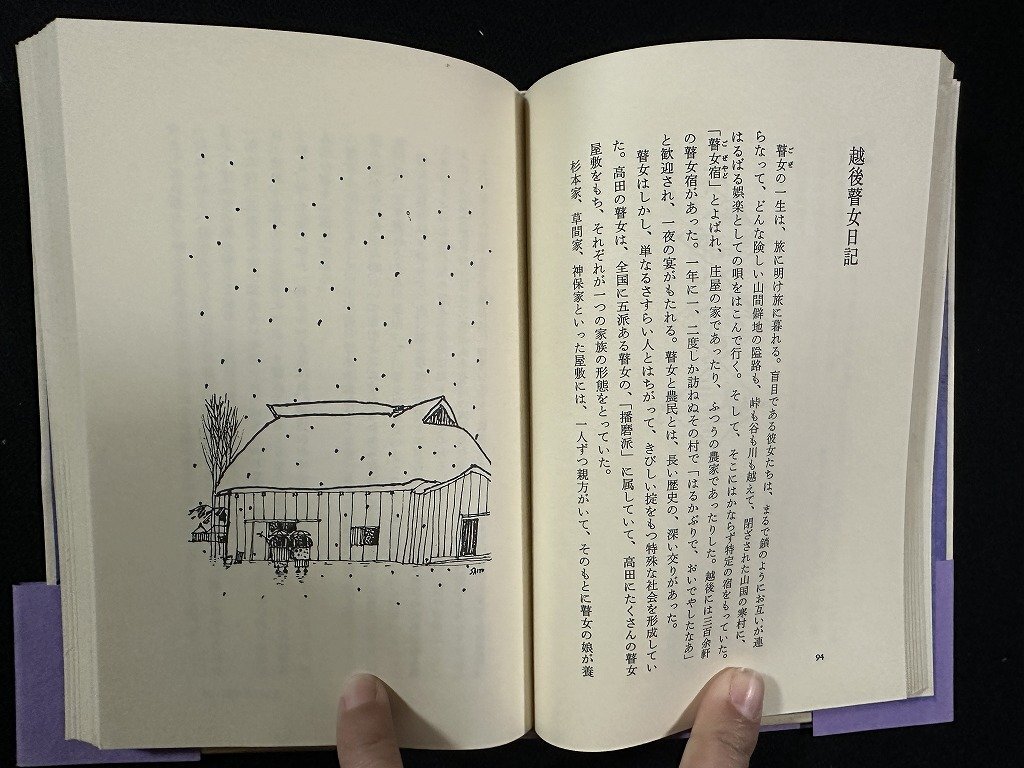 越後瞽女日記
瞽女の一生は、旅に明け旅に暮れる。盲目である彼女たちは、まるで鎖のようにお互いが連
ごぜ
らなって、どんな険しい山間僻地の隘路も、峠も谷も川も越えて、閉ざされた山国の寒村に、
はるばる娯楽としての唄をはこんで行く。そして、そこにはかならず特定の宿をもっていた。
「瞽女宿」とよばれ、庄屋の家であったり、ふつうの農家であったりした。越後には三百余軒
ごぜやど
の瞽女宿があった。一年に一、二度しか訪ねぬその村で「はるかぶりで、おいでやしたなあ」
と歓迎され、一夜の宴がもたれる。瞽女と農民とは、長い歴史の、深い交りがあった。
瞽女はしかし、単なるさすらい人とはちがって、きびしい掟をもつ特殊な社会を形成してい
た。高田の瞽女は、全国に五派ある瞽女の、「播磨派」に属していて、高田にたくさんの瞽女
屋敷をもち、それぞれが一つの家族の形態をとっていた。
杉本家、草間家、神保家といった屋敷には、一人ずつ親方がいて、そのもとに瞽女の娘が養
94
SAITO